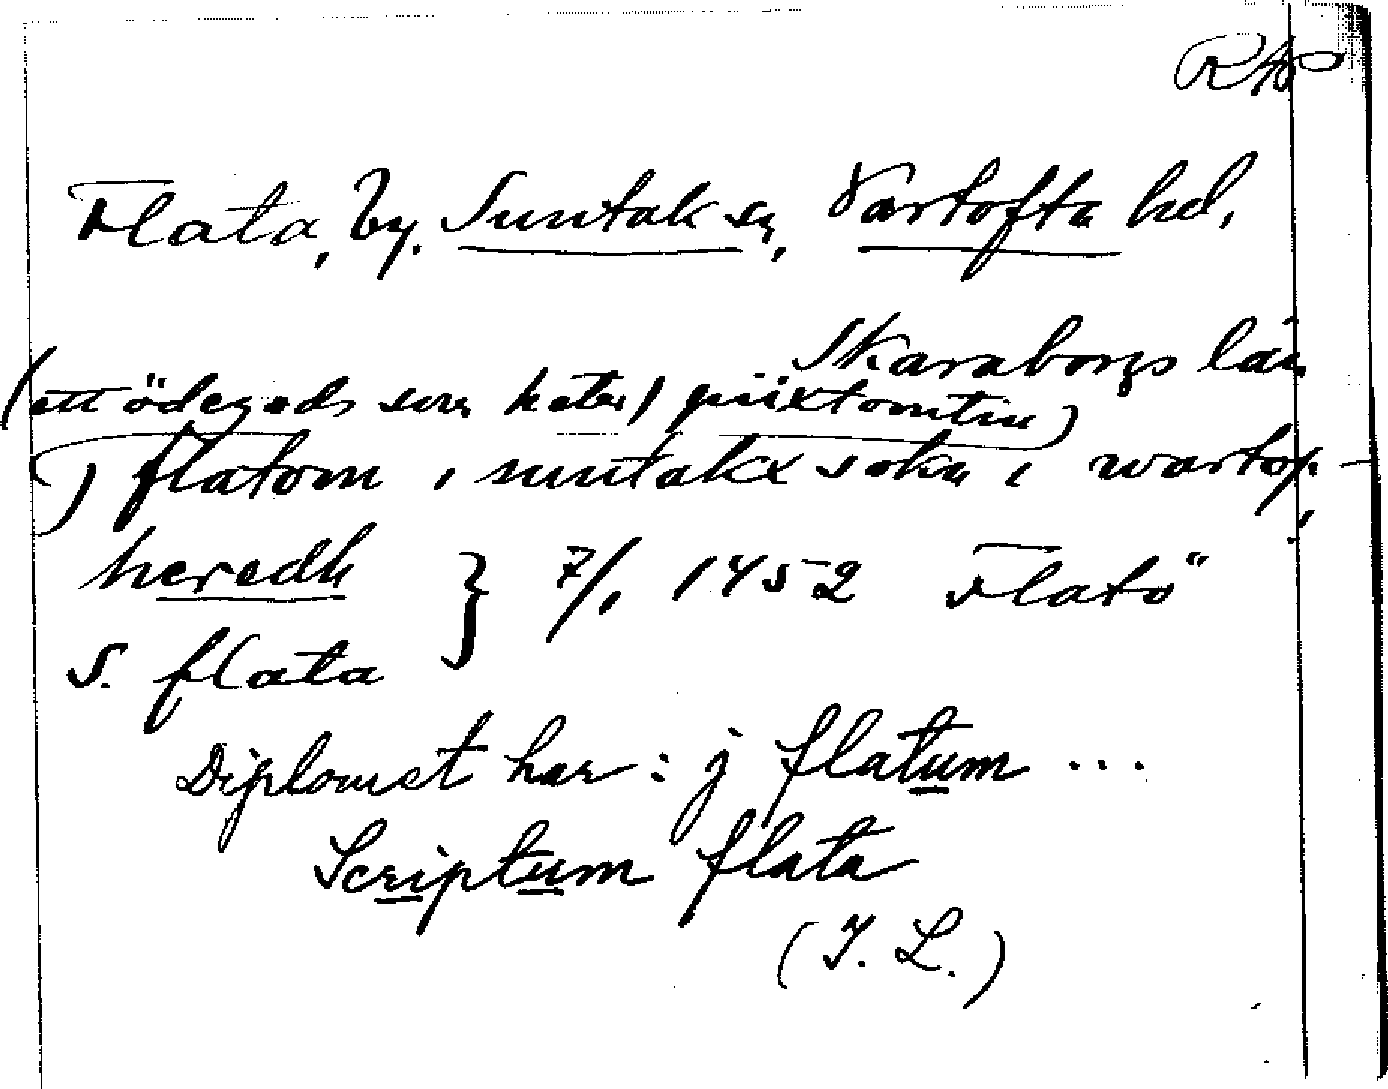 RAP
Flata, by. Suntak sn, Vartofta hd,
Skaraborgs län
(ett ödegods som heter)
j flatom i suntakx sokn i wartop-
heredh } 7/1 1452 Flatö
S. flata
Diplomet har: j flatum ...
Scriptum flata
(I. L.)